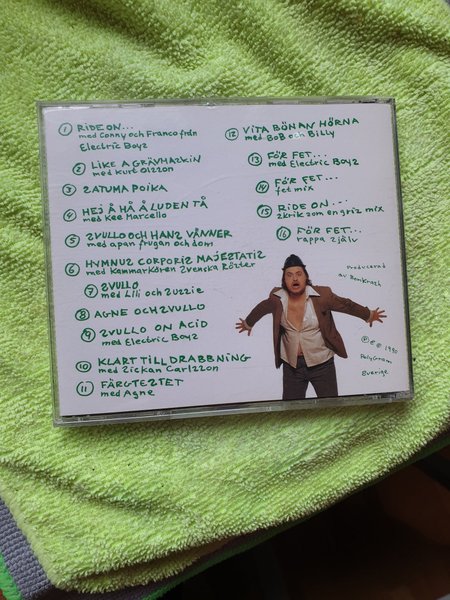 1 RIDE ON...
med Conny och Franco från
Electric Boyz
2 LIKE A GRÄVMAZKIN
med Kurt Olzzon
3 ZATUMA POIKA
4 HEJ Å HÅ Å LUDEN TÅ
med Kee Marcello
5 ZVULLO OCH HANZ VÄNNER
med apan frugan och dom
6 HYMNUZ CORPORIZ MAJEZTATIZ
med Kammarkören Zvenzka Rözter
7 ZVULLO
med Lili och Zuzzie
8 AGNE OCH ZVULLO
9 ZVULLO ON ACID
med Electric Boyz
10 KLART TILL DRABBNING
med Zickan Carlzzon
11 FÄRGTEZTET
med Agne
12 VITA BÖNAN HÖRNA
med BOB och Billy
13 FÖR FET...
med Electric Boyz
14 FÖR FET...
fet mix
15 RIDE ON...
Zkrik zom en griz mix
16 FÖR FET...
rappa zjälv
Producerad
av Bonkrazh
Ⓟ © 1990
PolyGram
Sverige